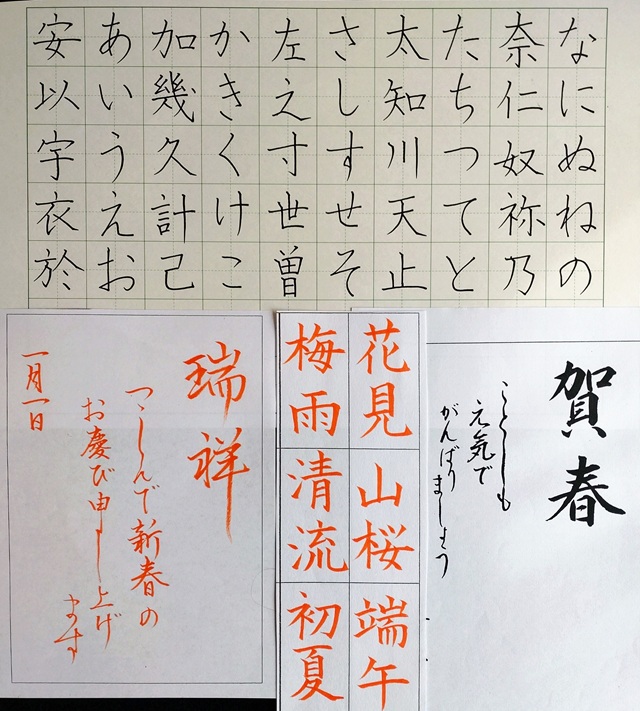 安以宇衣於
あいうえお
加幾久計己
かきくけこ
左之寸世曽
さしすせそ
太知川天止
たちつてと
奈仁奴祢乃
なにぬねの
賀春
ことしも
元気で
がんばりましょう
花見
山桜
端午
梅雨
清流
初夏
瑞祥
つゝしんで新春の
お慶び申し上げ
ます
一月一日